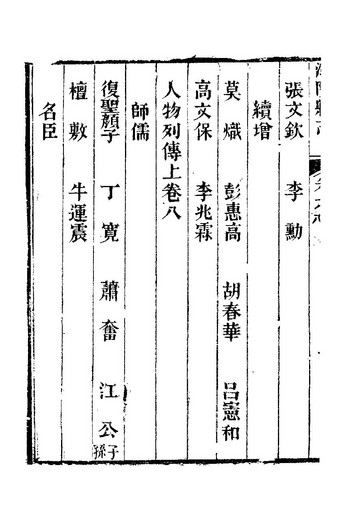 張文欽 李勳
續增
莫熾 彭惠高 胡春華 呂憲和
高文保 李兆霖
人物列傳上卷八
師儒
復聖顏子 丁寬 蕭奮 江公子孫
檀敷 牛運震
名臣